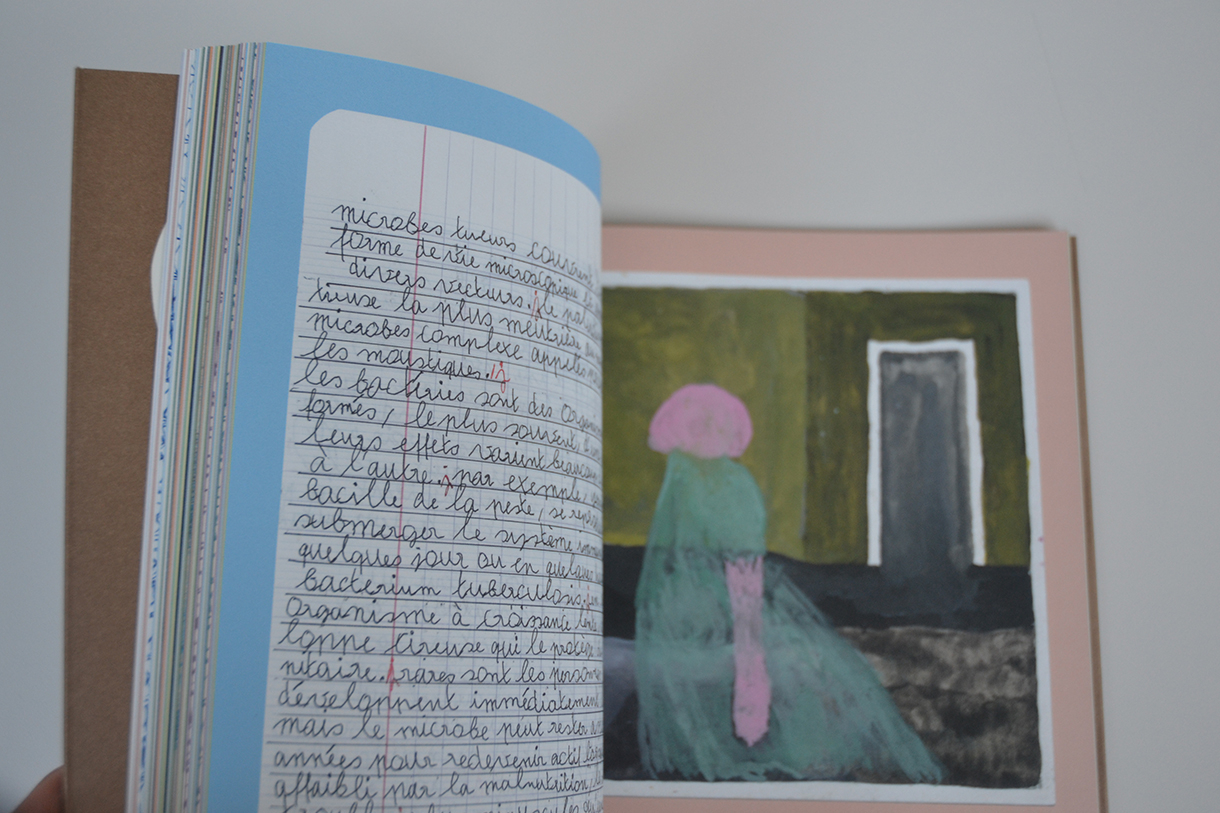 microbes tueurs
forme de vie microscopique
divers vecteurs. le
tieuse la plus meutrière
microbes complexe appelés
les moustiques.
les bactéries sont des organi
formés, le plus souvent,
leurs effets varient beaucoup
à l'autre. par exemple,
bacille de la peste, se repro
submerger le système
quelques jour ou en quelques
bacterium tuberculosis.
organisme à croissance lente
loppe cireuse qui le protège
nitaire. rares sont les personnes
développent immédiatement
mais le microbe peut rester
années pour redevenir actif
affaibli par la malnutrition,